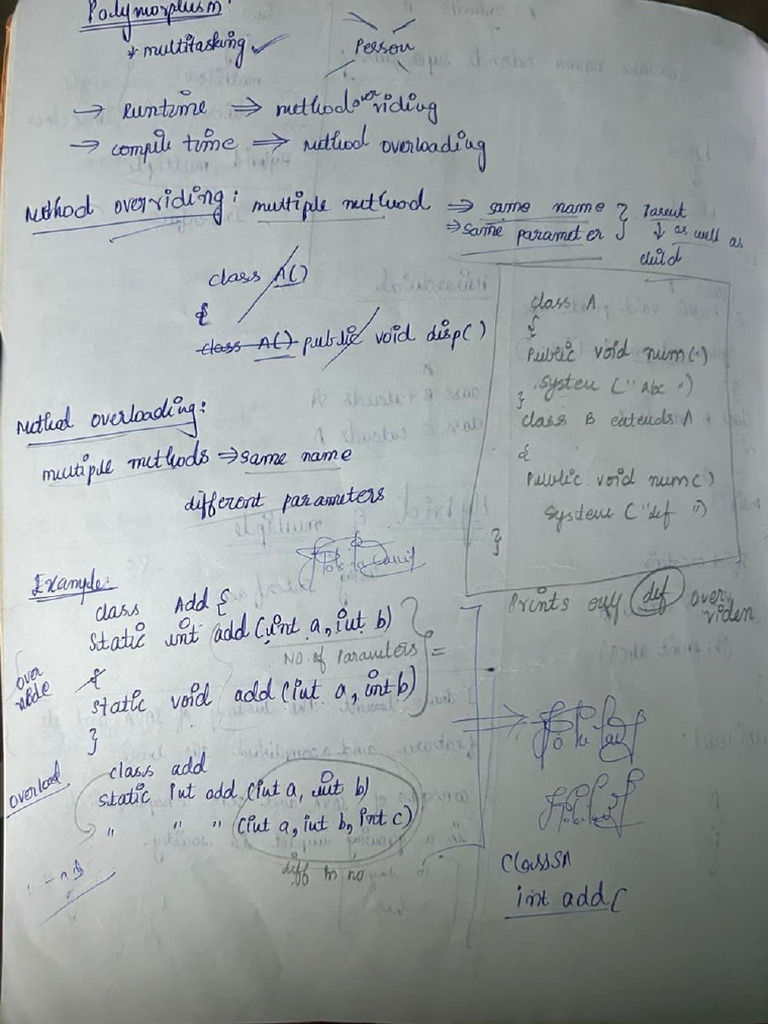 Polymorphism:
* multitasking ✓
Person
→ Runtime ⇒ method overriding
→ compile time ⇒ method overloading
Method overriding: multiple method ⇒ same name } Parent
⇒ same parameter } ↓ as well as
child
class A()
{
class A() public void disp()
class A
{
Public void num()
System ("abc")
}
class B extends A
{
Public void num()
System ("def")
}
Prints only def over
riden
Method overloading:
multiple methods ⇒ same name
different parameters
Example:
class Add {
static int add (int a, int b)
No. of Parameters =
over
ride
{
static void add (int a, int b)
}
overload
class add
static int add (int a, int b)
" " " (int a, int b, int c)
diff in no
class A
int add (